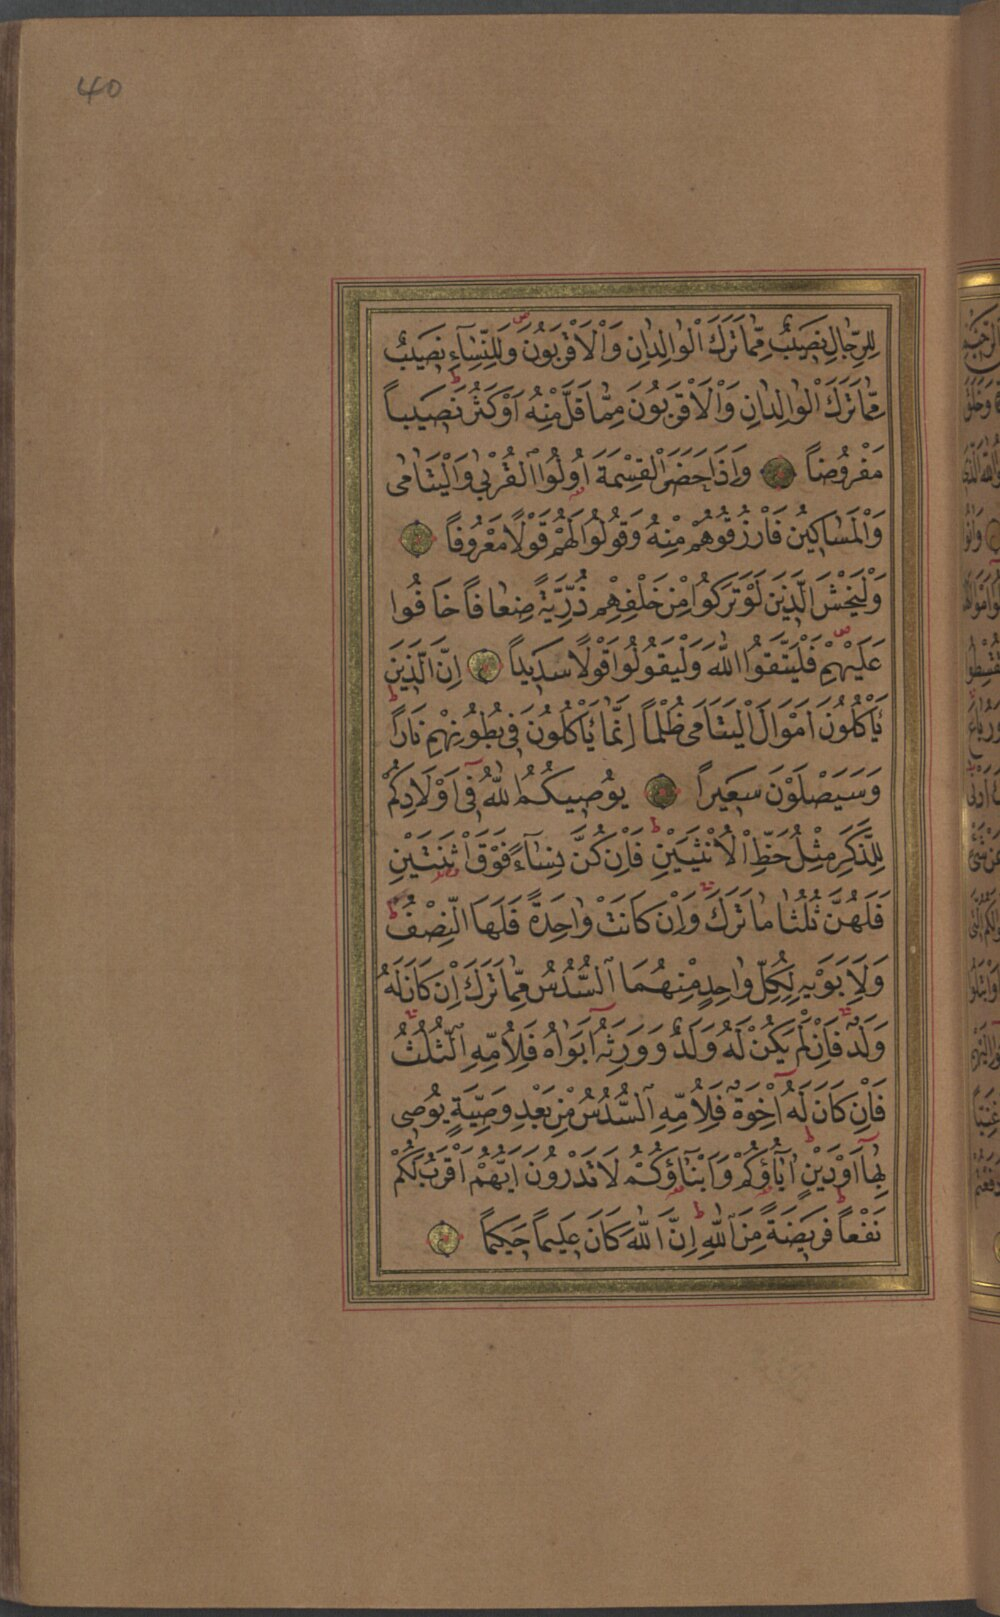 40
لِلرِّجَالِ نَصِيبٌ مِّمَّا تَرَكَ الْوَالِدَانِ وَالْاَقْرَبُونَ وَلِلنِّسَآءِ نَصِيبٌ
مِّمَّا تَرَكَ الْوَالِدَانِ وَالْاَقْرَبُونَ مِمَّا قَلَّ مِنْهُ اَوْ كَثُرَ نَصِيباً
مَفْرُوضاً وَاِذَا حَضَرَ الْقِسْمَةَ اُولُوا الْقُرْبٰى وَالْيَتَامٰى
وَالْمَسَاكِينُ فَارْزُقُوهُمْ مِنْهُ وَقُولُوا لَهُمْ قَوْلًا مَعْرُوفاً
وَلْيَخْشَ الَّذِينَ لَوْ تَرَكُوا مِنْ خَلْفِهِمْ ذُرِّيَّةً ضِعَافاً خَافُوا
عَلَيْهِمْ فَلْيَتَّقُوا اللّٰهَ وَلْيَقُولُوا قَوْلًا سَدِيداً اِنَّ الَّذِينَ
يَاْكُلُونَ اَمْوَالَ الْيَتَامَى ظُلْماً اِنَّمَا يَاْكُلُونَ فِى بُطُونِهِمْ نَاراً
وَسَيَصْلَوْنَ سَعِيراً يُوصِيكُمُ اللّٰهُ فِى اَوْلَادِكُمْ
لِلذَّكَرِ مِثْلُ حَظِّ الْاُنْثَيَيْنِ فَاِنْ كُنَّ نِسَآءً فَوْقَ اثْنَتَيْنِ
فَلَهُنَّ ثُلُثَا مَا تَرَكَ وَاِنْ كَانَتْ وَاحِدَةً فَلَهَا النِّصْفُ
وَلِاَبَوَيْهِ لِكُلِّ وَاحِدٍ مِنْهُمَا السُّدُسُ مِمَّا تَرَكَ اِنْ كَانَ لَهُ
وَلَدٌ فَاِنْ لَمْ يَكُنْ لَهُ وَلَدٌ وَوَرِثَهُ اَبَوَاهُ فَلِاُمِّهِ الثُّلُثُ
فَاِنْ كَانَ لَهُ اِخْوَةٌ فَلِاُمِّهِ السُّدُسُ مِنْ بَعْدِ وَصِيَّةٍ يُوصِى
بِهَا اَوْ دَيْنٍ اٰبَاؤُكُمْ وَاَبْنَاؤُكُمْ لَا تَدْرُونَ اَيُّهُمْ اَقْرَبُ لَكُمْ
نَفْعاً فَرِيضَةً مِنَ اللّٰهِ اِنَّ اللّٰهَ كَانَ عَلِيماً حَكِيماً